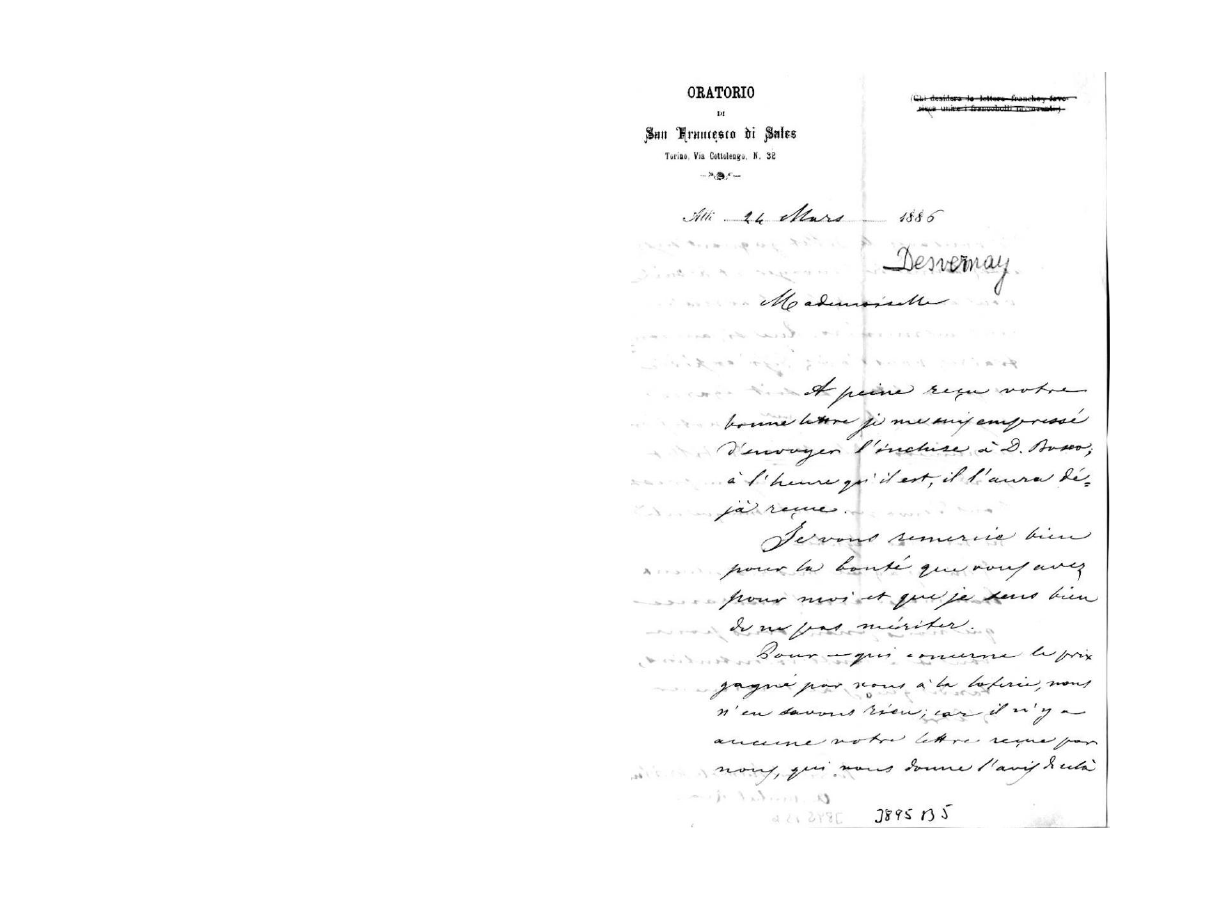 ORATORIO
DI
San Francesco di Sales
Torino, Via Cottolengo, N. 32
(Chi desidera la lettera franca, favo-
risca unire i francobolli
Alli 24 Mars 1886
Desvernay
Mademoiselle
A peine reçu votre
bonne lettre je me suis empressé
d'envoyer l'inchise à D. Bosco;
à l'heure qu'il est, il l'aura dé=
jà reçue.
Je vous remercie bien
pour la bonté que vous avez
pour moi et que je sens bien
de ne pas mériter.
Pour ce qui concerne le prix
gagné par vous à la loterie, nous
n'en savons rien; car il n'y a
aucune votre lettre reçue par
nous, qui nous donne l'avis de celà
J895 B5